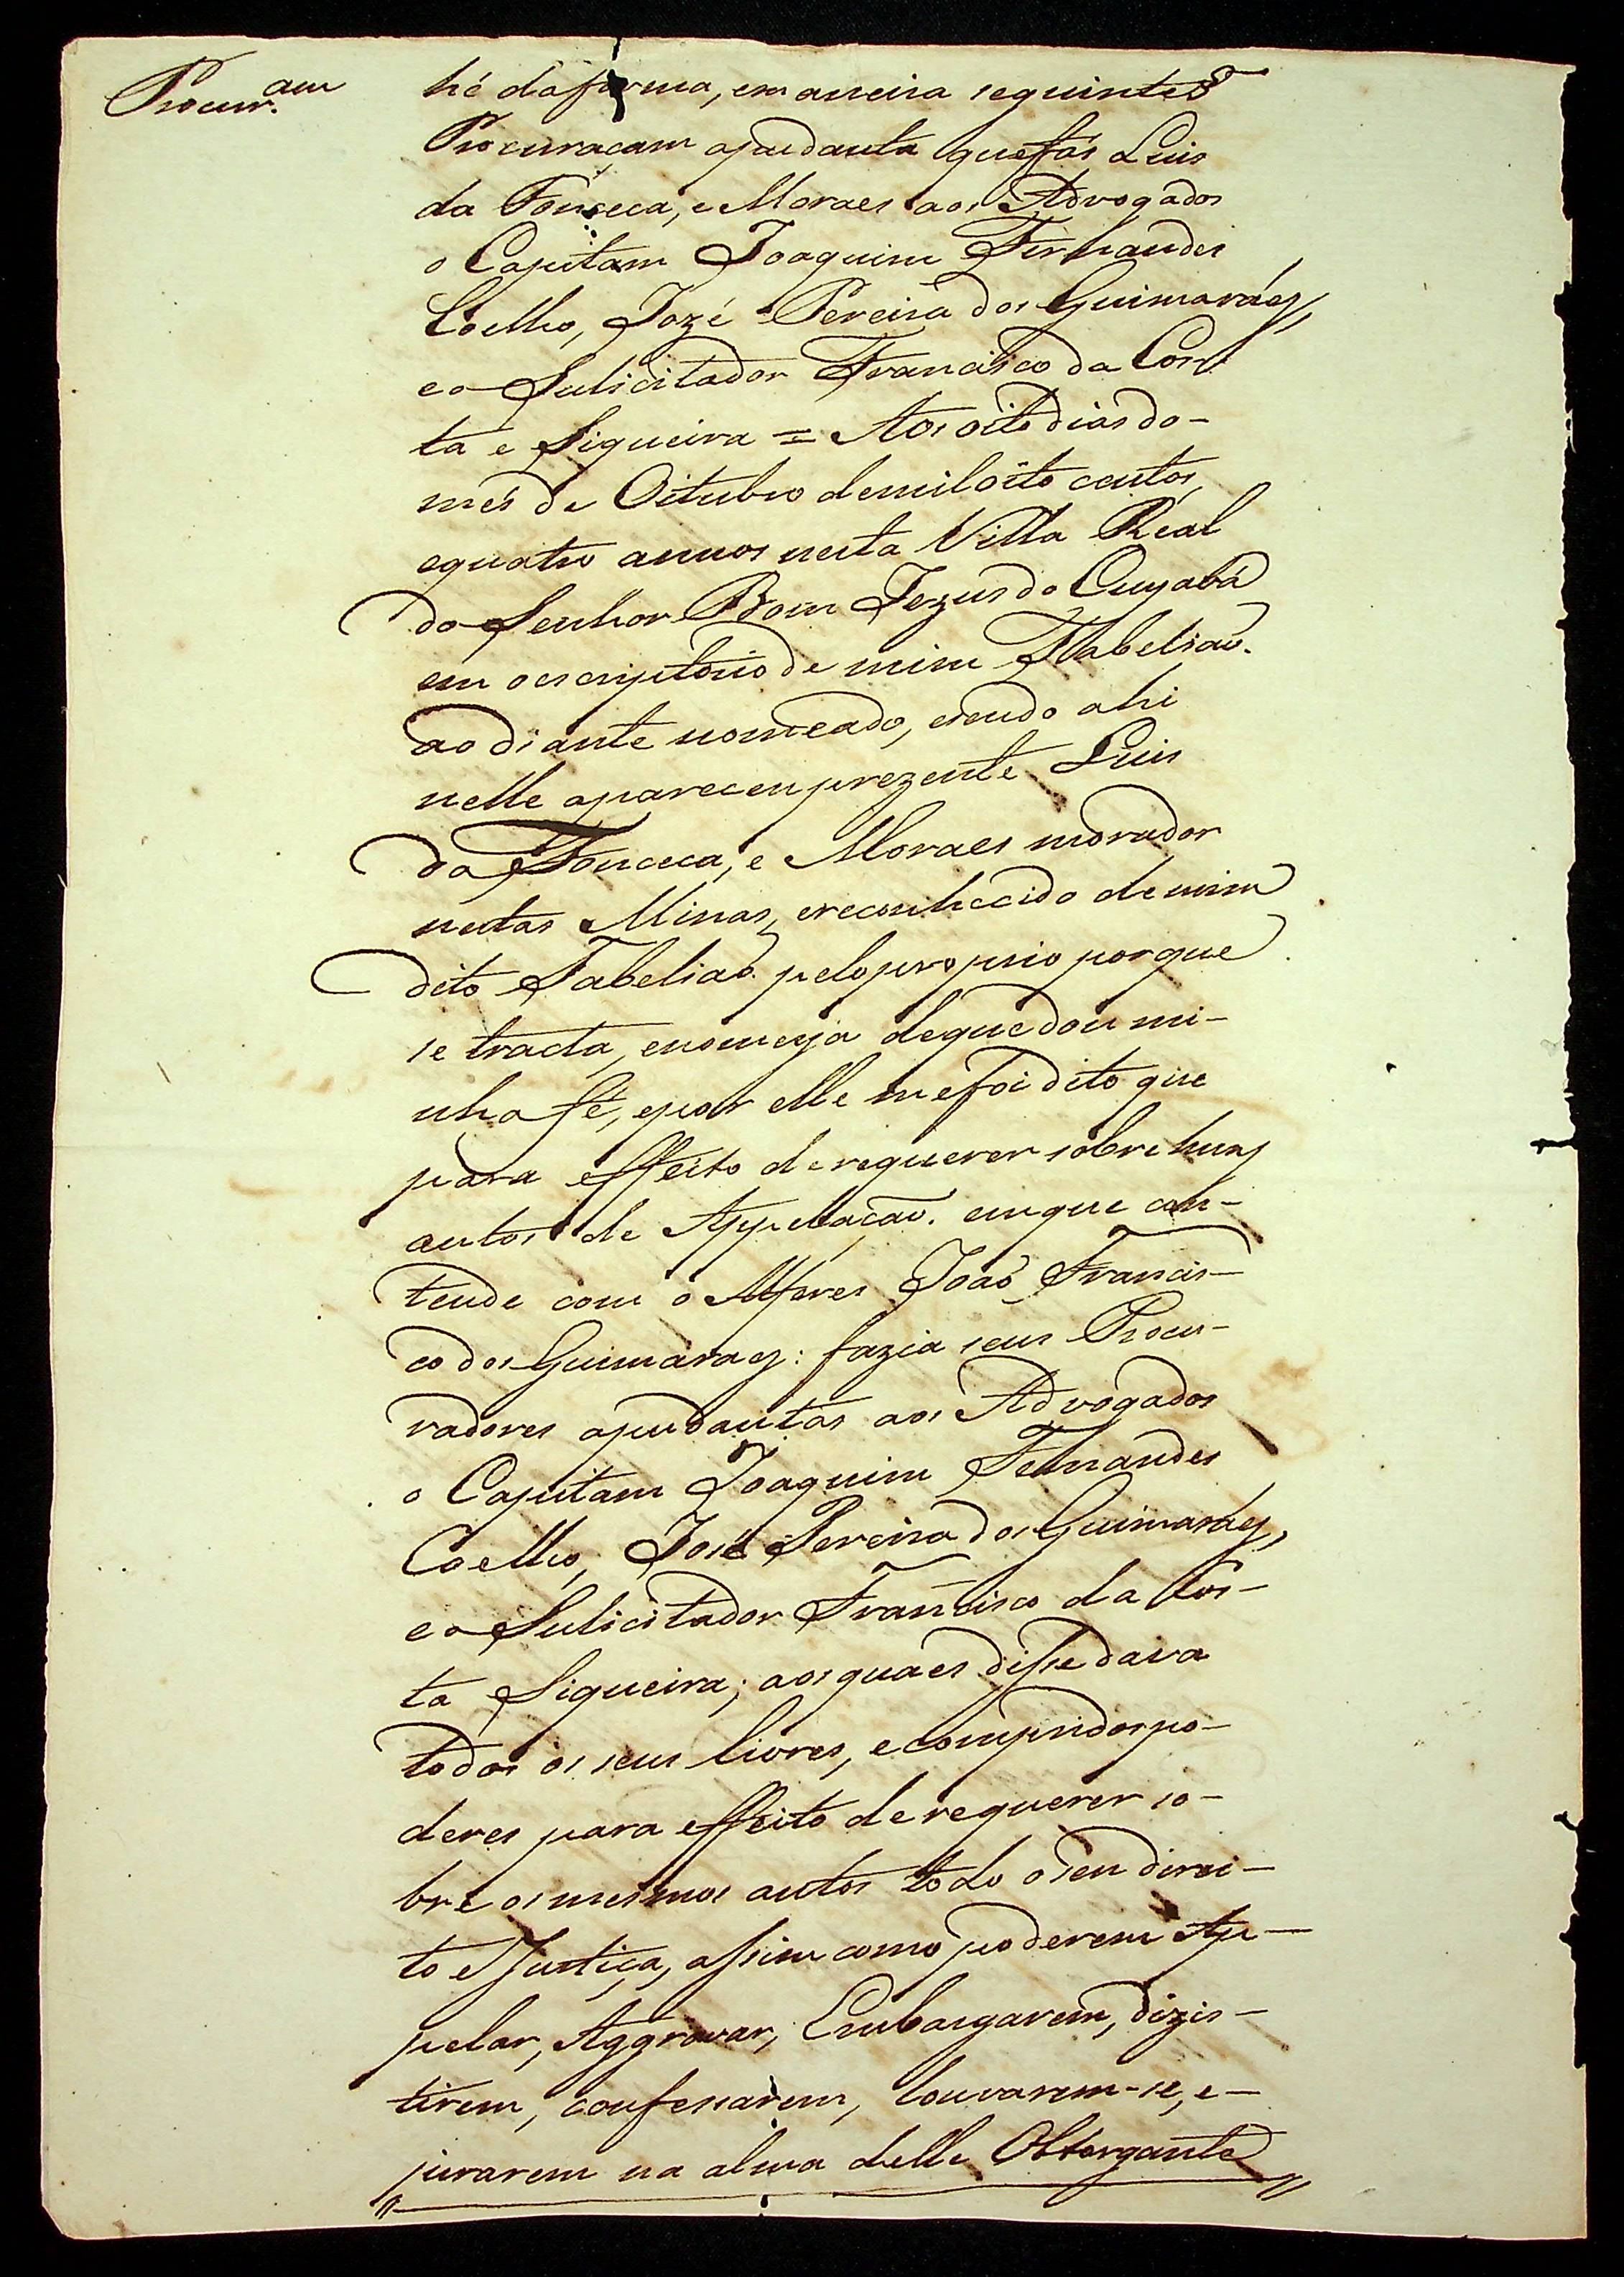 Procur.am
hé da forma, emaneira seguinte
Procuraçam apudauta quefás Luis
da Fonseca, e Moraes aos Advogados
o Capitam Joaquim Fernandes
Coelho, Jozé Pereira dos Guimaráes,
eo Sulicitador Francisco da Cos
ta e Siqueira = Aos oito dias do-
més de Oitubro demiloito centos,
equatro annos nesta Villa Real
do Senhor Bom Jezus do Cuyabá
em oescriptorio de mim Tabeliaõ.
ao diante nomeado, esendo ahi
nelle apareceu prezente Luis
da Fonceca, e Moraes morador
nestas Minas, ereconhecido demim
dito Tabeliaõ pelopropriò porque
se tracta, enomeya dequedou mi-
nha fé, epor elle mefoi dito que
para effeito derequerer sobre huns
autos de Appellaçaõ. emque con-
tende com o Alferes Joaõ Francis-
co dos Guimaraes: fazia seus Procu-
radores apudautas aos Advogados
o Capitam Joaquim Fernandes
Coelho, José Pereira dos Guimaráes,
eo Sulicitador Francisco da Cos-
ta Siqueira; aosquaes disse dava
todos os seus livres, ecompridospo-
deres para effeito derequerer so-
bre osmesmos autos todo oseu direi-
to eJustiça, assim como poderem Ap-
pelar, Aggravar, Embargarem, dizis-
tirem, confessarem, louvarem-se, e-
jurarem na alma delle Obtorgante